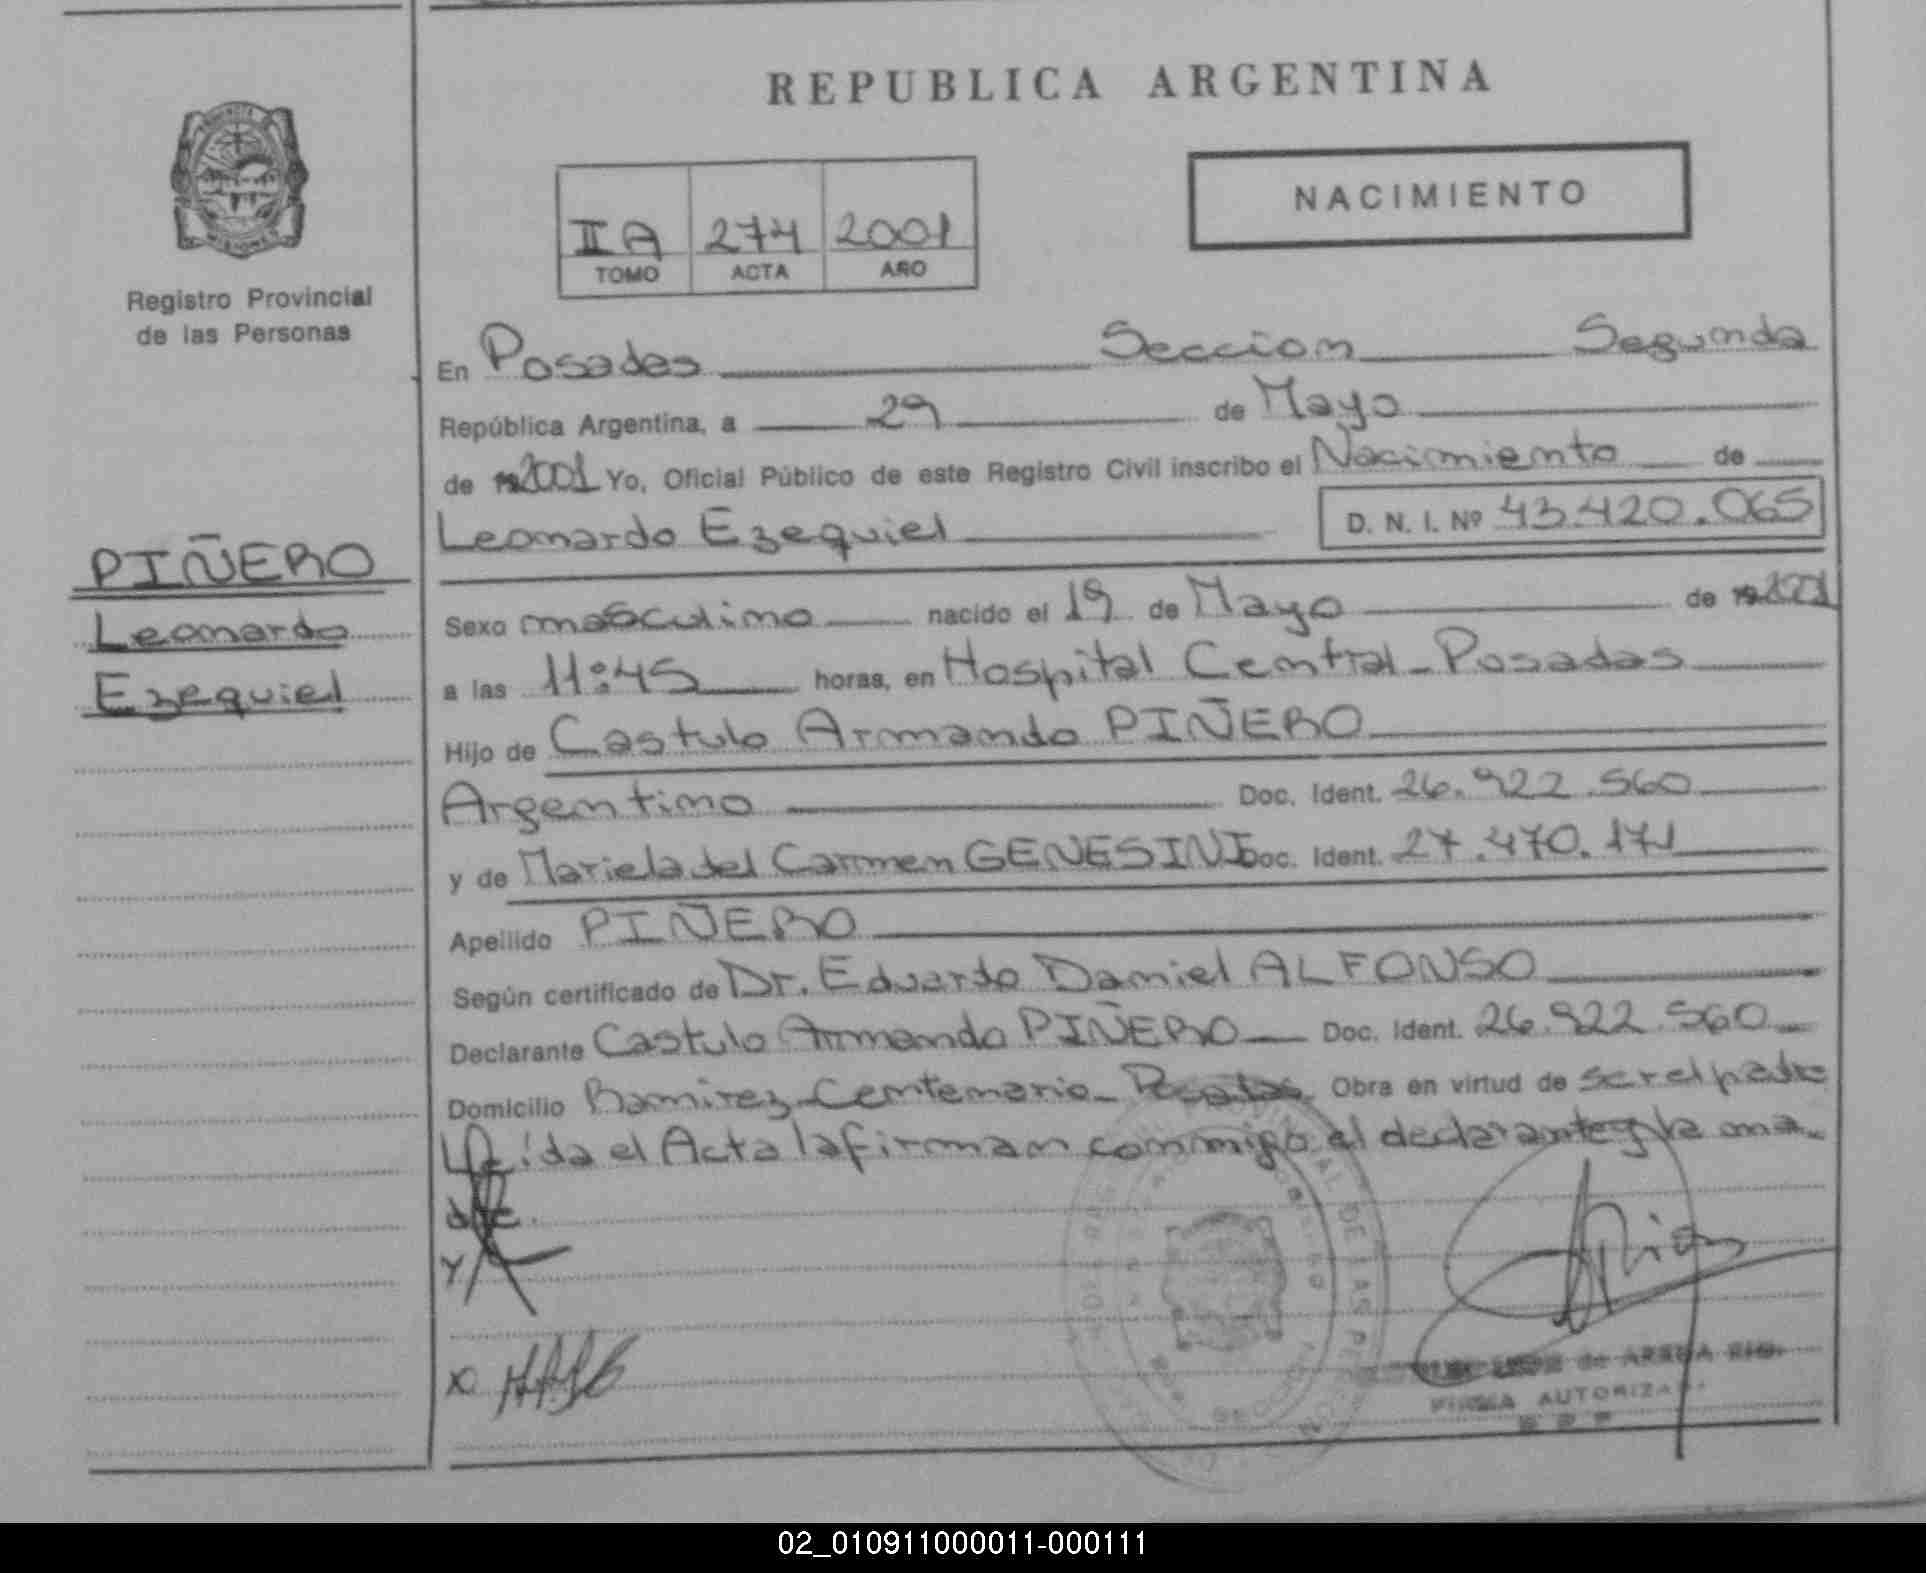 REPUBLICA ARGENTINA
NACIMIENTO
II A 274 2001
TOMO ACTA AÑO
Registro Provincial
de las Personas
PIÑERO
Leonardo
Ezequiel
En Posadas Seccion Segunda
República Argentina, a 29 de Mayo
de 2001 Yo, Oficial Público de este Registro Civil inscribo el Nacimiento de
Leonardo Ezequiel D. N. I. Nº 43.420.065
Sexo masculino nacido el 19 de Mayo de 2001
a las 11:45 horas, en Hospital Central - Posadas
Hijo de Castulo Armando PIÑERO
Argentino Doc. Ident. 26.922.560
y de Mariela del Carmen GENESINI Doc. Ident. 27.470.171
Apellido PIÑERO
Según certificado de Dr. Eduardo Daniel ALFONSO
Declarante Castulo Armando PIÑERO Doc. Ident. 26.922.560
Domicilio Ramirez Centenario - Posadas Obra en virtud de ser el padre
Leída el Acta la firman conmigo el declarante y la ma-
dre.
de ARRUA
FIRMA AUTORIZADA
02_010911000011-000111